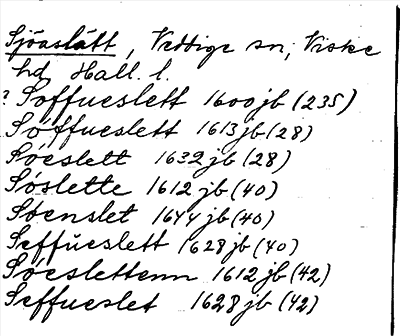 Sjöaslätt, Veddige sn, Viske
hd Hall. l.
? Söffueslett 1600 jb (235)
Söffueslett 1613 jb (28)
Söeslett 1632 jb (28)
Söslette 1612 jb (40)
Söenslet 1644 jb (40)
Seffueslett 1628 jb (40)
Söeslettenn 1612 jb (42)
Seffueslet 1628 jb (42)